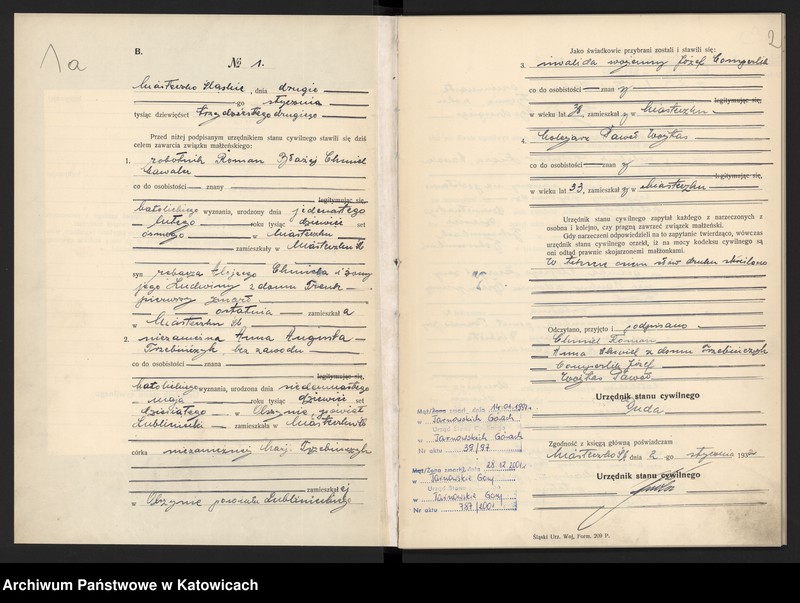 1a
B.
№ 1.
Miasteczko Śląskie, dnia drugie
go stycznia
tysiąc dziewięćset trzydziestego drugiego
Przed niżej podpisanym urzędnikiem stanu cywilnego stawili się dziś
celem zawarcia związku małżeńskiego:
1. robotnik Roman Błażej Chmiel
kawaler
co do osobistości znany
legitymując się,
katolickiego wyznania, urodzony dnia jedenastego
lutego roku tysiąc dziewięć set
ósmego w Miasteczku
zamieszkały w Miasteczku
syn Chmiela i żony
jego Ludwiny z domu
pierwszy zmarł
ostatnia zamieszkała
w Miasteczku
2. niezamężna Anna Augusta
Trzebińczyk bez zawodu
co do osobistości znana
legitymując się,
katolickiego wyznania, urodzona dnia siedemnastego
maja roku tysiąc dziewięć set
dziesiątego w powiat
Lubliniecki zamieszkała w Miasteczku
córka niezamężnej Marji Trzebińczyk
zamieszkałej
w powiatu Lublinieckiego
2
Jako świadkowie przybrani zostali i stawili się:
3. inwalida wojenny Józef Comperlik
co do osobistości znany
legitymując się,
w wieku lat 38, zamieszkały w Miasteczku
4. Paweł
co do osobistości znany
legitymując się,
w wieku lat 33, zamieszkały w Miasteczku
Urzędnik stanu cywilnego zapytał każdego z narzeczonych z
osobna i kolejno, czy pragną zawrzeć związek małżeński.
Gdy narzeczeni odpowiedzieli na to zapytanie twierdząco, wówczas
urzędnik stanu cywilnego orzekł, iż na mocy kodeksu cywilnego są
oni odtąd prawnie skojarzonemi małżonkami.
słów druku skreślono
Odczytano, przyjęto i podpisano
Chmiel Roman
Anna Chmiel z domu Trzebińczyk
Comperlik Józef
Paweł
Urzędnik stanu cywilnego
Duda
Zgodność z księgą główną poświadczam
Miasteczko Śl dnia 2 stycznia 1932
Urzędnik stanu cywilnego
Mąż/Żona zmarł dnia 14.01.1997
w Tarnowskich Górach
Urząd Stanu
w Tarnowskich Górach
Nr aktu 39/97
Mąż/Żona zmarł dnia 28.12.2001
w Tarnowskie Góry
Urząd Stanu
w Tarnowskie Góry
Nr aktu 787/2001
Śląski Urz. Woj. Form. 209 P.
Archiwum Państwowe w Katowicach